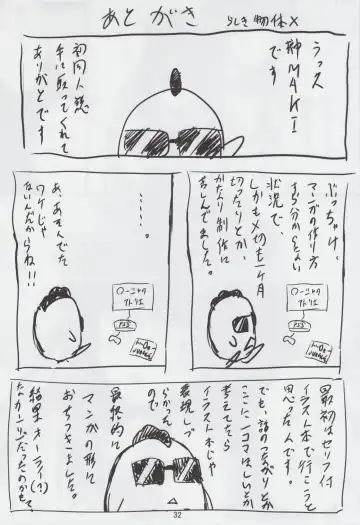 あとがき
らしき物体×
うっス
神MAKI
です
初同人誌
手に取ってくれて
ありがとです
ぶっちゃけ、
マンガの作り方
すら分からない
状況で、
しかも〆切も一ヶ月
切ってたりとか、
かなり制作に
苦しんでました。
・・・・・・。
あ、あそんでた
ワケじゃ
ないんだからね!!
最初はセリフ付
イラスト本で行こうと
思ったんです。
でも、話のつながりとか
ここに一コマほしいとか
考えてたら
イラスト本じゃ
表現しづ
らかった
ので
最終的に
マンガの形に
おちつきました。
結果オーライ(?)
だったのかも。
32